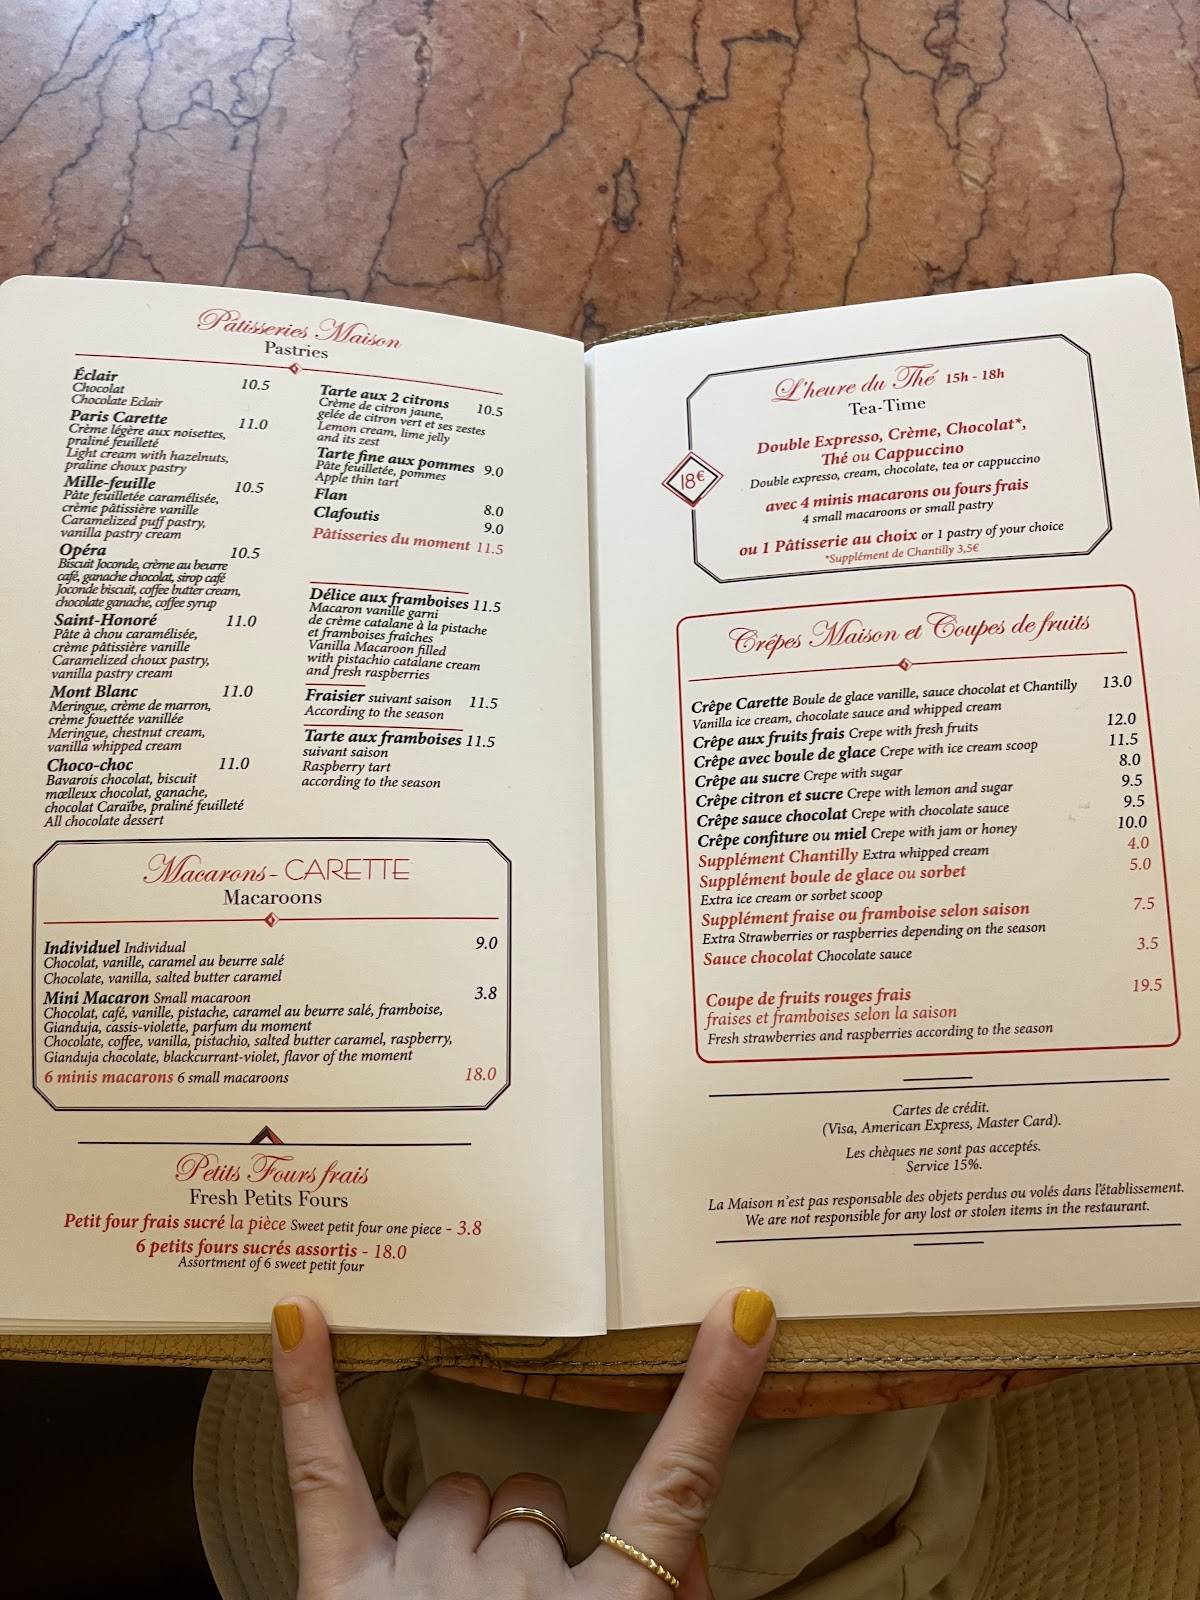 Pâtisseries Maison
Pastries
Éclair 10.5
Chocolat
Chocolate Eclair
Paris Carette 11.0
Crème légère aux noisettes,
praliné feuilleté
Light cream with hazelnuts,
praline choux pastry
Mille-feuille 10.5
Pâte feuilletée caramélisée,
crème pâtissière vanille
Caramelized puff pastry,
vanilla pastry cream
Opéra 10.5
Biscuit Joconde, crème au beurre
café, ganache chocolat, sirop café
Joconde biscuit, coffee butter cream,
chocolate ganache, coffee syrup
Saint-Honoré 11.0
Pâte à chou caramélisée,
crème pâtissière vanille
Caramelized choux pastry,
vanilla pastry cream
Mont Blanc 11.0
Meringue, crème de marron,
crème fouettée vanillée
Meringue, chestnut cream,
vanilla whipped cream
Choco-choc 11.0
Bavarois chocolat, biscuit
mœlleux chocolat, ganache,
chocolat Caraïbe, praliné feuilleté
All chocolate dessert
Tarte aux 2 citrons 10.5
Crème de citron jaune,
gelée de citron vert et ses zestes
Lemon cream, lime jelly
and its zest
Tarte fine aux pommes 9.0
Pâte feuilletée, pommes
Apple thin tart
Flan 8.0
Clafoutis 9.0
Pâtisseries du moment 11.5
Délice aux framboises 11.5
Macaron vanille garni
de crème catalane à la pistache
et framboises fraîches
Vanilla Macaroon filled
with pistachio catalane cream
and fresh raspberries
Fraisier suivant saison 11.5
According to the season
Tarte aux framboises 11.5
suivant saison
Raspberry tart
according to the season
Macarons - CARETTE
Macaroons
Individuel Individual 9.0
Chocolat, vanille, caramel au beurre salé
Chocolate, vanilla, salted butter caramel
Mini Macaron Small macaroon 3.8
Chocolat, café, vanille, pistache, caramel au beurre salé, framboise,
Gianduja, cassis-violette, parfum du moment
Chocolate, coffee, vanilla, pistachio, salted butter caramel, raspberry,
Gianduja chocolate, blackcurrant-violet, flavor of the moment
6 minis macarons 6 small macaroons 18.0
Petits Fours frais
Fresh Petits Fours
Petit four frais sucré la pièce Sweet petit four one piece - 3.8
6 petits fours sucrés assortis - 18.0
Assortment of 6 sweet petit four
L'heure du Thé 15h - 18h
Tea-Time
18€
Double Expresso, Crème, Chocolat*,
Thé ou Cappuccino
Double expresso, cream, chocolate, tea or cappuccino
avec 4 minis macarons ou fours frais
4 small macaroons or small pastry
ou 1 Pâtisserie au choix or 1 pastry of your choice
*Supplément de Chantilly 3,5€
Crêpes Maison et Coupes de fruits
Crêpe Carette Boule de glace vanille, sauce chocolat et Chantilly 13.0
Vanilla ice cream, chocolate sauce and whipped cream
Crêpe aux fruits frais Crepe with fresh fruits 12.0
Crêpe avec boule de glace Crepe with ice cream scoop 11.5
Crêpe au sucre Crepe with sugar 8.0
Crêpe citron et sucre Crepe with lemon and sugar 9.5
Crêpe sauce chocolat Crepe with chocolate sauce 9.5
Crêpe confiture ou miel Crepe with jam or honey 10.0
Supplément Chantilly Extra whipped cream 4.0
Supplément boule de glace ou sorbet 5.0
Extra ice cream or sorbet scoop
Supplément fraise ou framboise selon saison 7.5
Extra Strawberries or raspberries depending on the season
Sauce chocolat Chocolate sauce 3.5
Coupe de fruits rouges frais 19.5
fraises et framboises selon la saison
Fresh strawberries and raspberries according to the season
Cartes de crédit.
(Visa, American Express, Master Card).
Les chèques ne sont pas acceptés.
Service 15%.
La Maison n'est pas responsable des objets perdus ou volés dans l'établissement.
We are not responsible for any lost or stolen items in the restaurant.